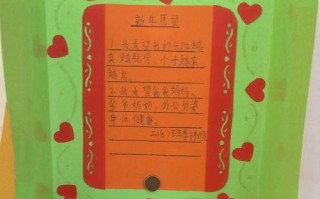 新年愿望
1.我希望我的牙齿越
来越好，个子越来
越高。
2.我希望爸爸妈妈、
爷爷奶奶、外公外婆
身体健康。